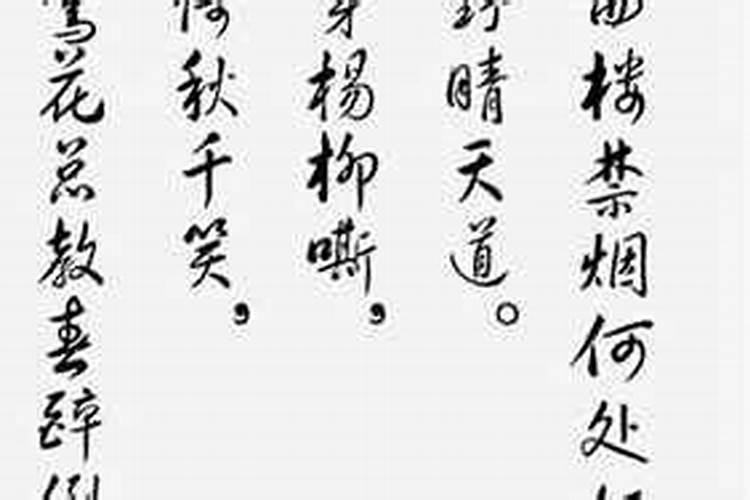 楼禁烟何处
野晴天道。
杨柳嘶，
秋千笑，
莺花总教春醉